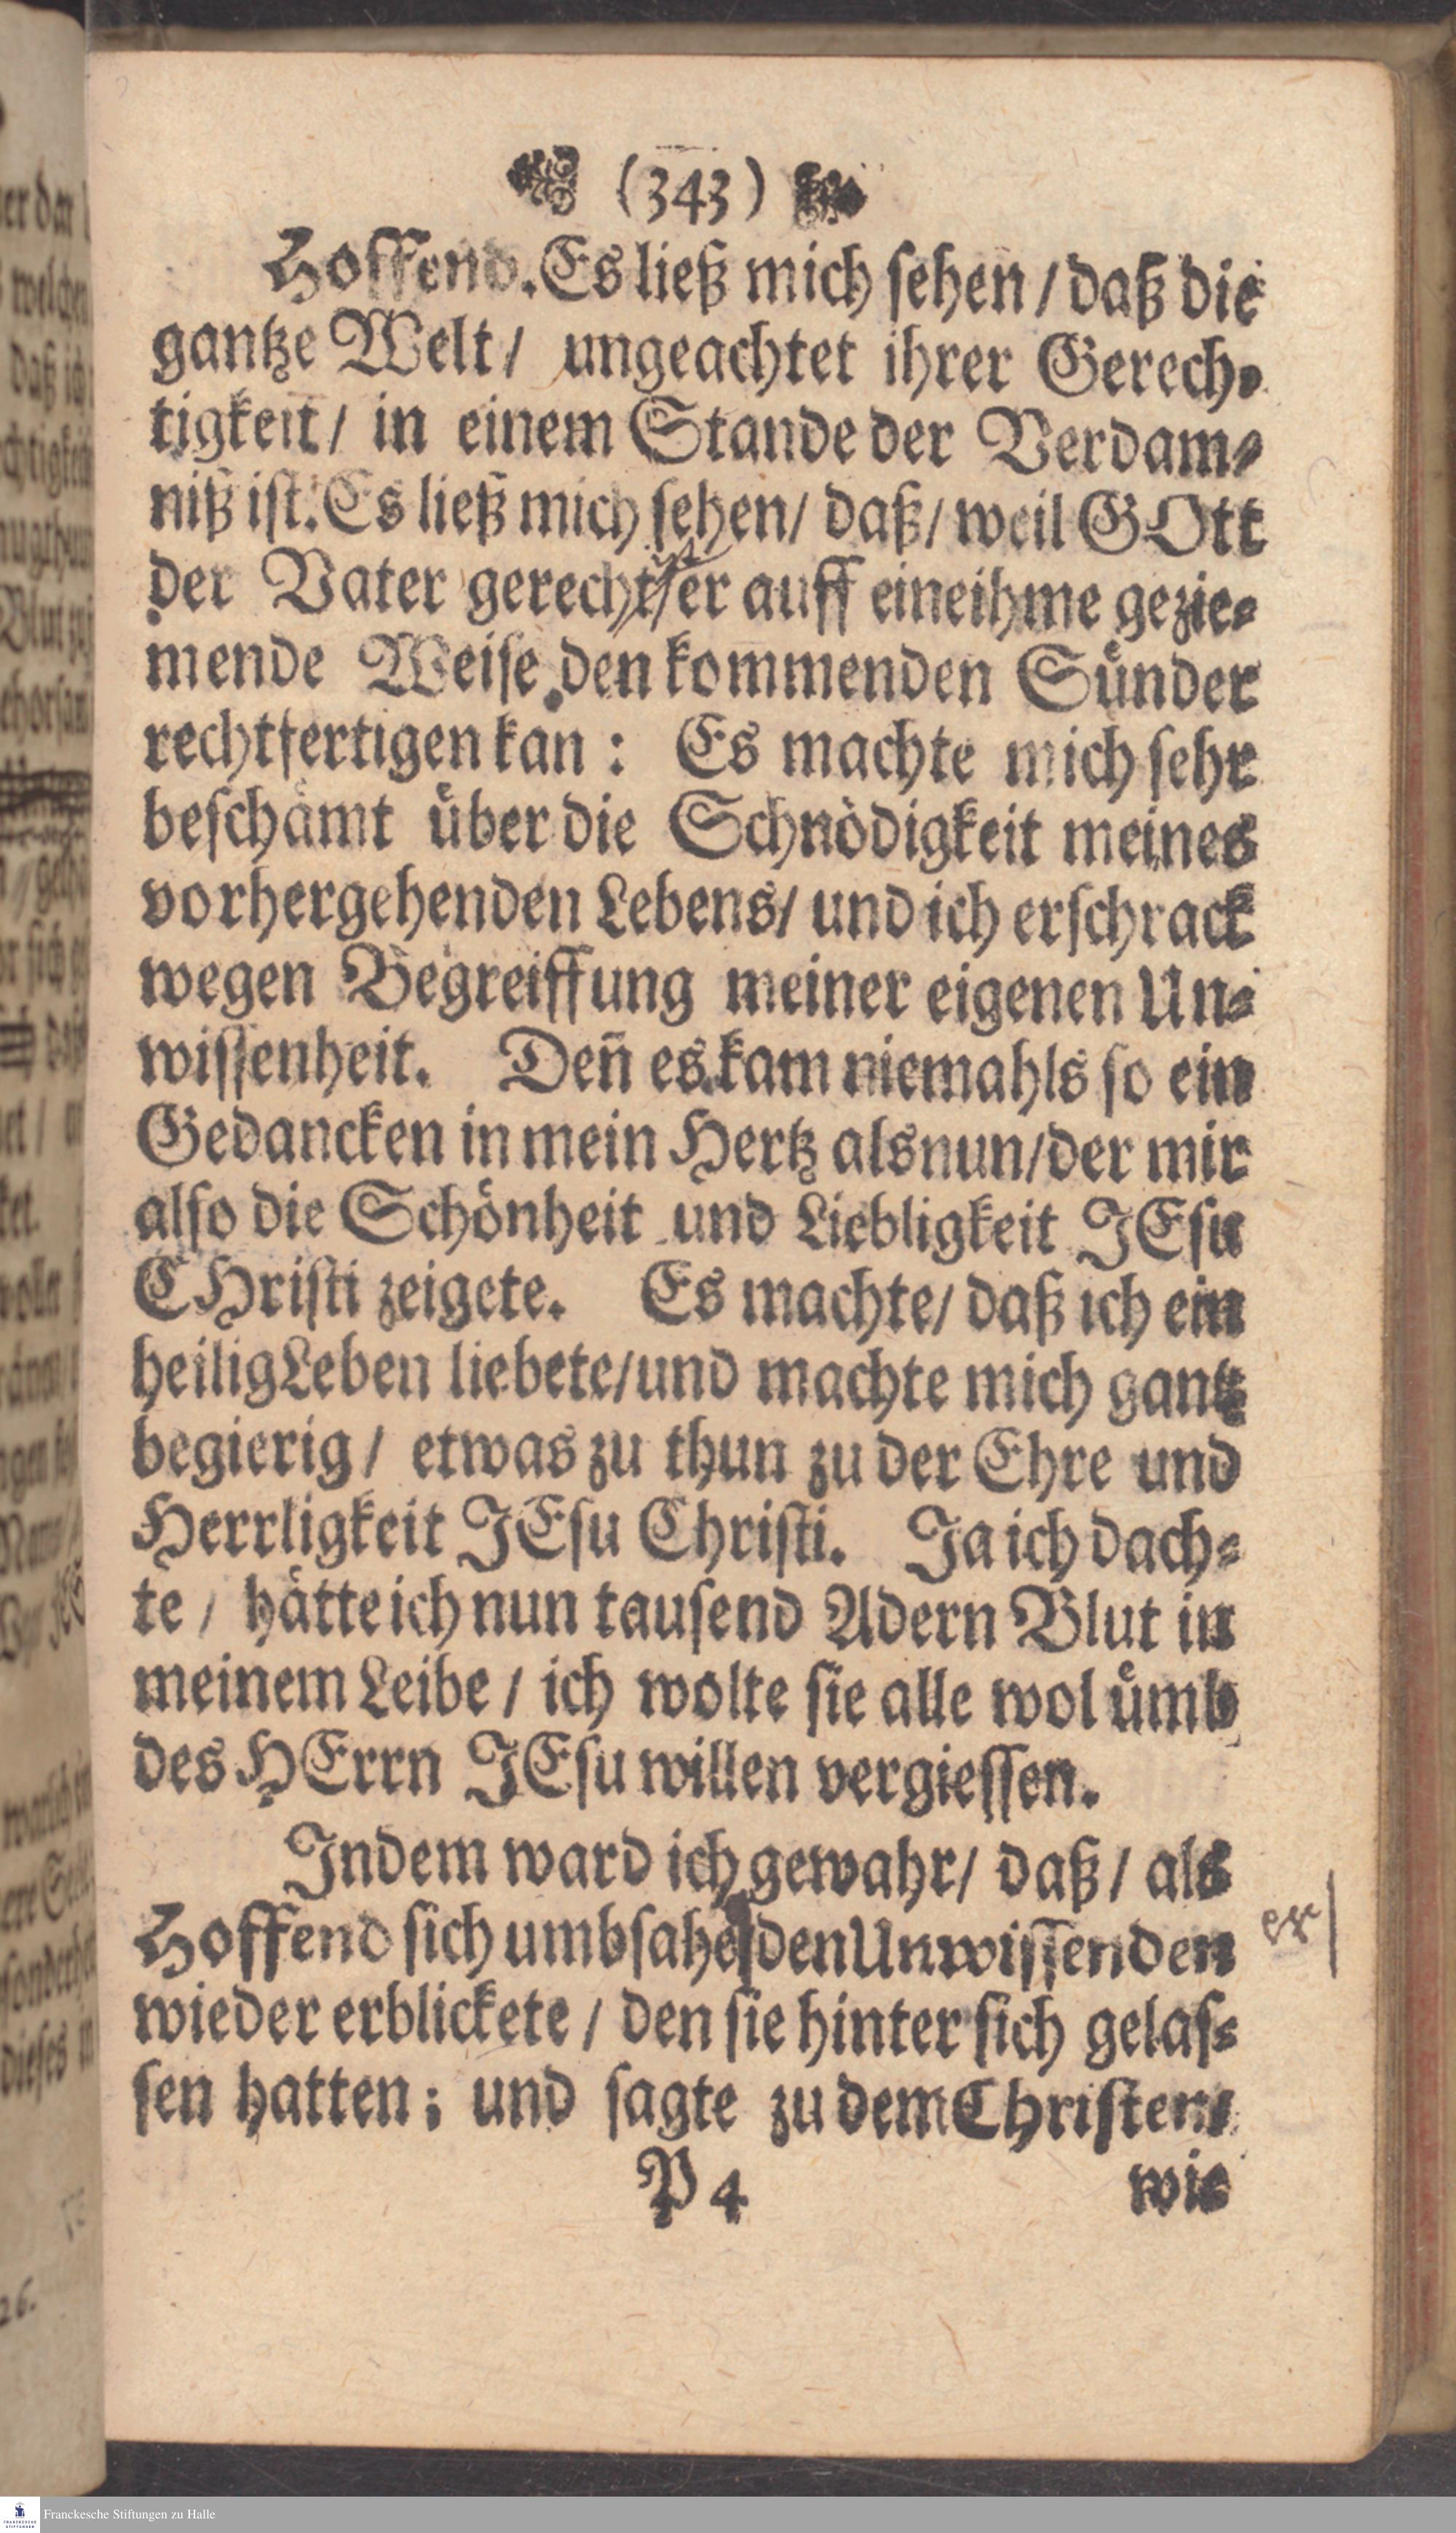 (343)
Hoffend. Es ließ mich sehen / daß die
gantze Welt / ungeachtet ihrer Gerech-
tigkeit / in einem Stande der Verdam-
niß ist. Es ließ mich sehen / daß / weil GOtt
der Vater gerecht ist / er auff eine ihme gezie-
mende Weise den kommenden Sůnder
rechtfertigen kan : Es machte mich sehr
beschåmt ůber die Schnödigkeit meines
vorhergehenden Lebens / und ich erschrack
wegen Begreiffung meiner eigenen Un-
wissenheit. Den̄ es kam niemahls so ein
Gedancken in mein Hertz als nun / der mir
also die Schönheit und Liebligkeit JEsu
CHristi zeigete. Es machte / daß ich ein
heilig Leben liebete / und machte mich gantz
begierig / etwas zu thun zu der Ehre und
Herrligkeit JEsu Christi. Ja ich dach-
te / håtte ich nun tausend Adern Blut in
meinem Leibe / ich wolte sie alle wol ůmb
des HErrn JEsu willen vergiessen.
Indem ward ich gewahr / daß / als
Hoffend sich umbsahe den Unwissenden
er
wieder erblickete / den sie hinter sich gelas-
sen hatten ; und sagte zu dem Christen /
P 4 wie
Franckesche Stiftungen zu Halle